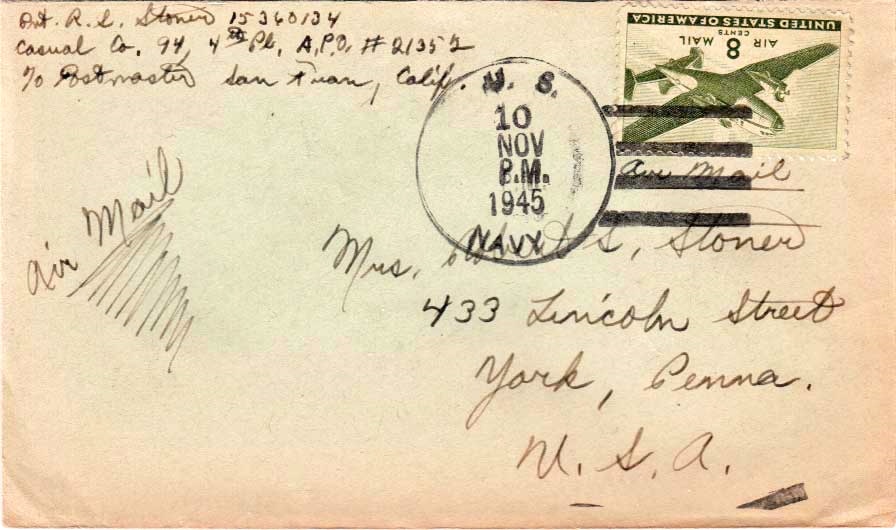 Pvt. R. L. Stoner 15360134
Casual Co. 94, 4th Pl, A.P.O. # 21352
c/o Postmaster San Fran, Calif.
UNITED STATES OF AMERICA
8 CENTS
AIR MAIL
U. S.
10
NOV
P.M.
1945
NAVY
Air Mail
Air Mail
Mrs. Robert L. Stoner
433 Lincoln Street
York, Penna.
U. S. A.